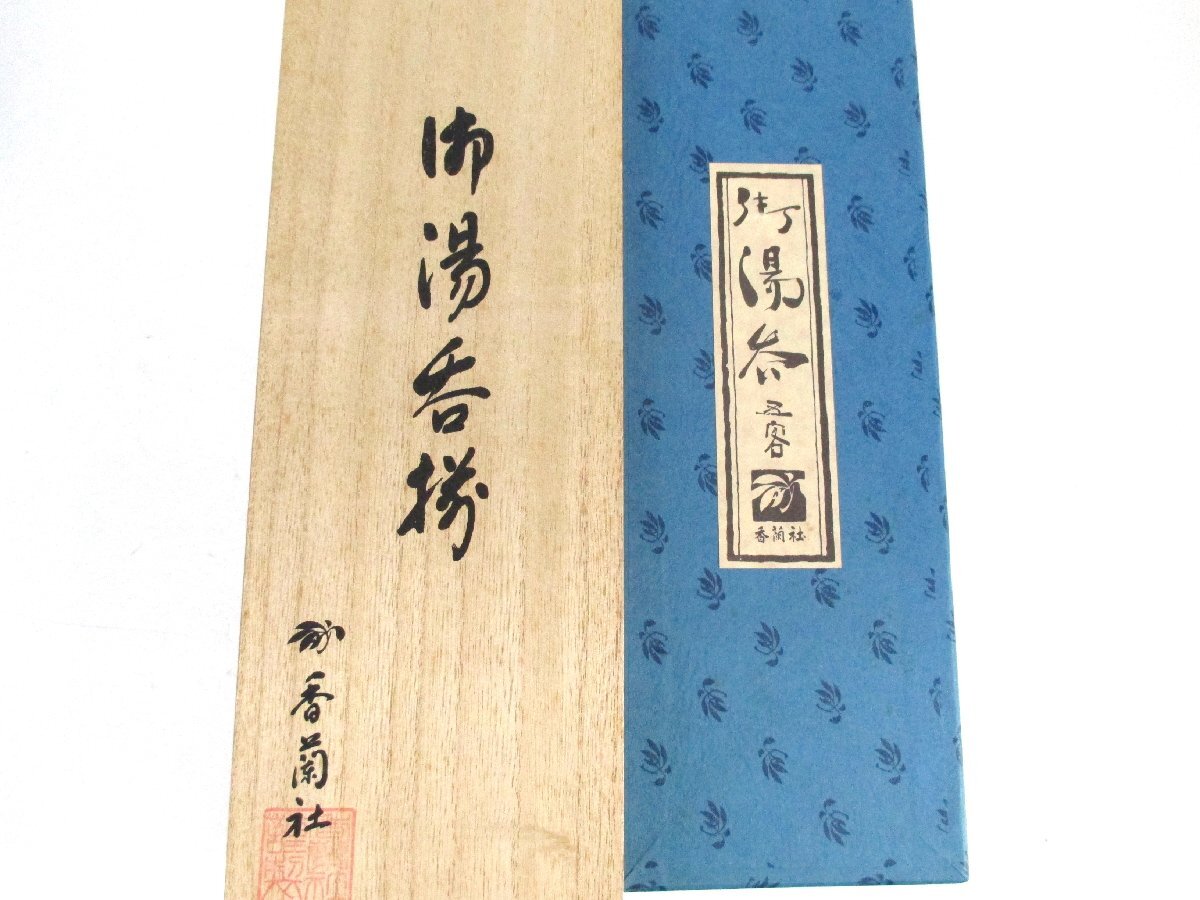 御湯呑揃
香蘭社
御湯呑
五客
香蘭社